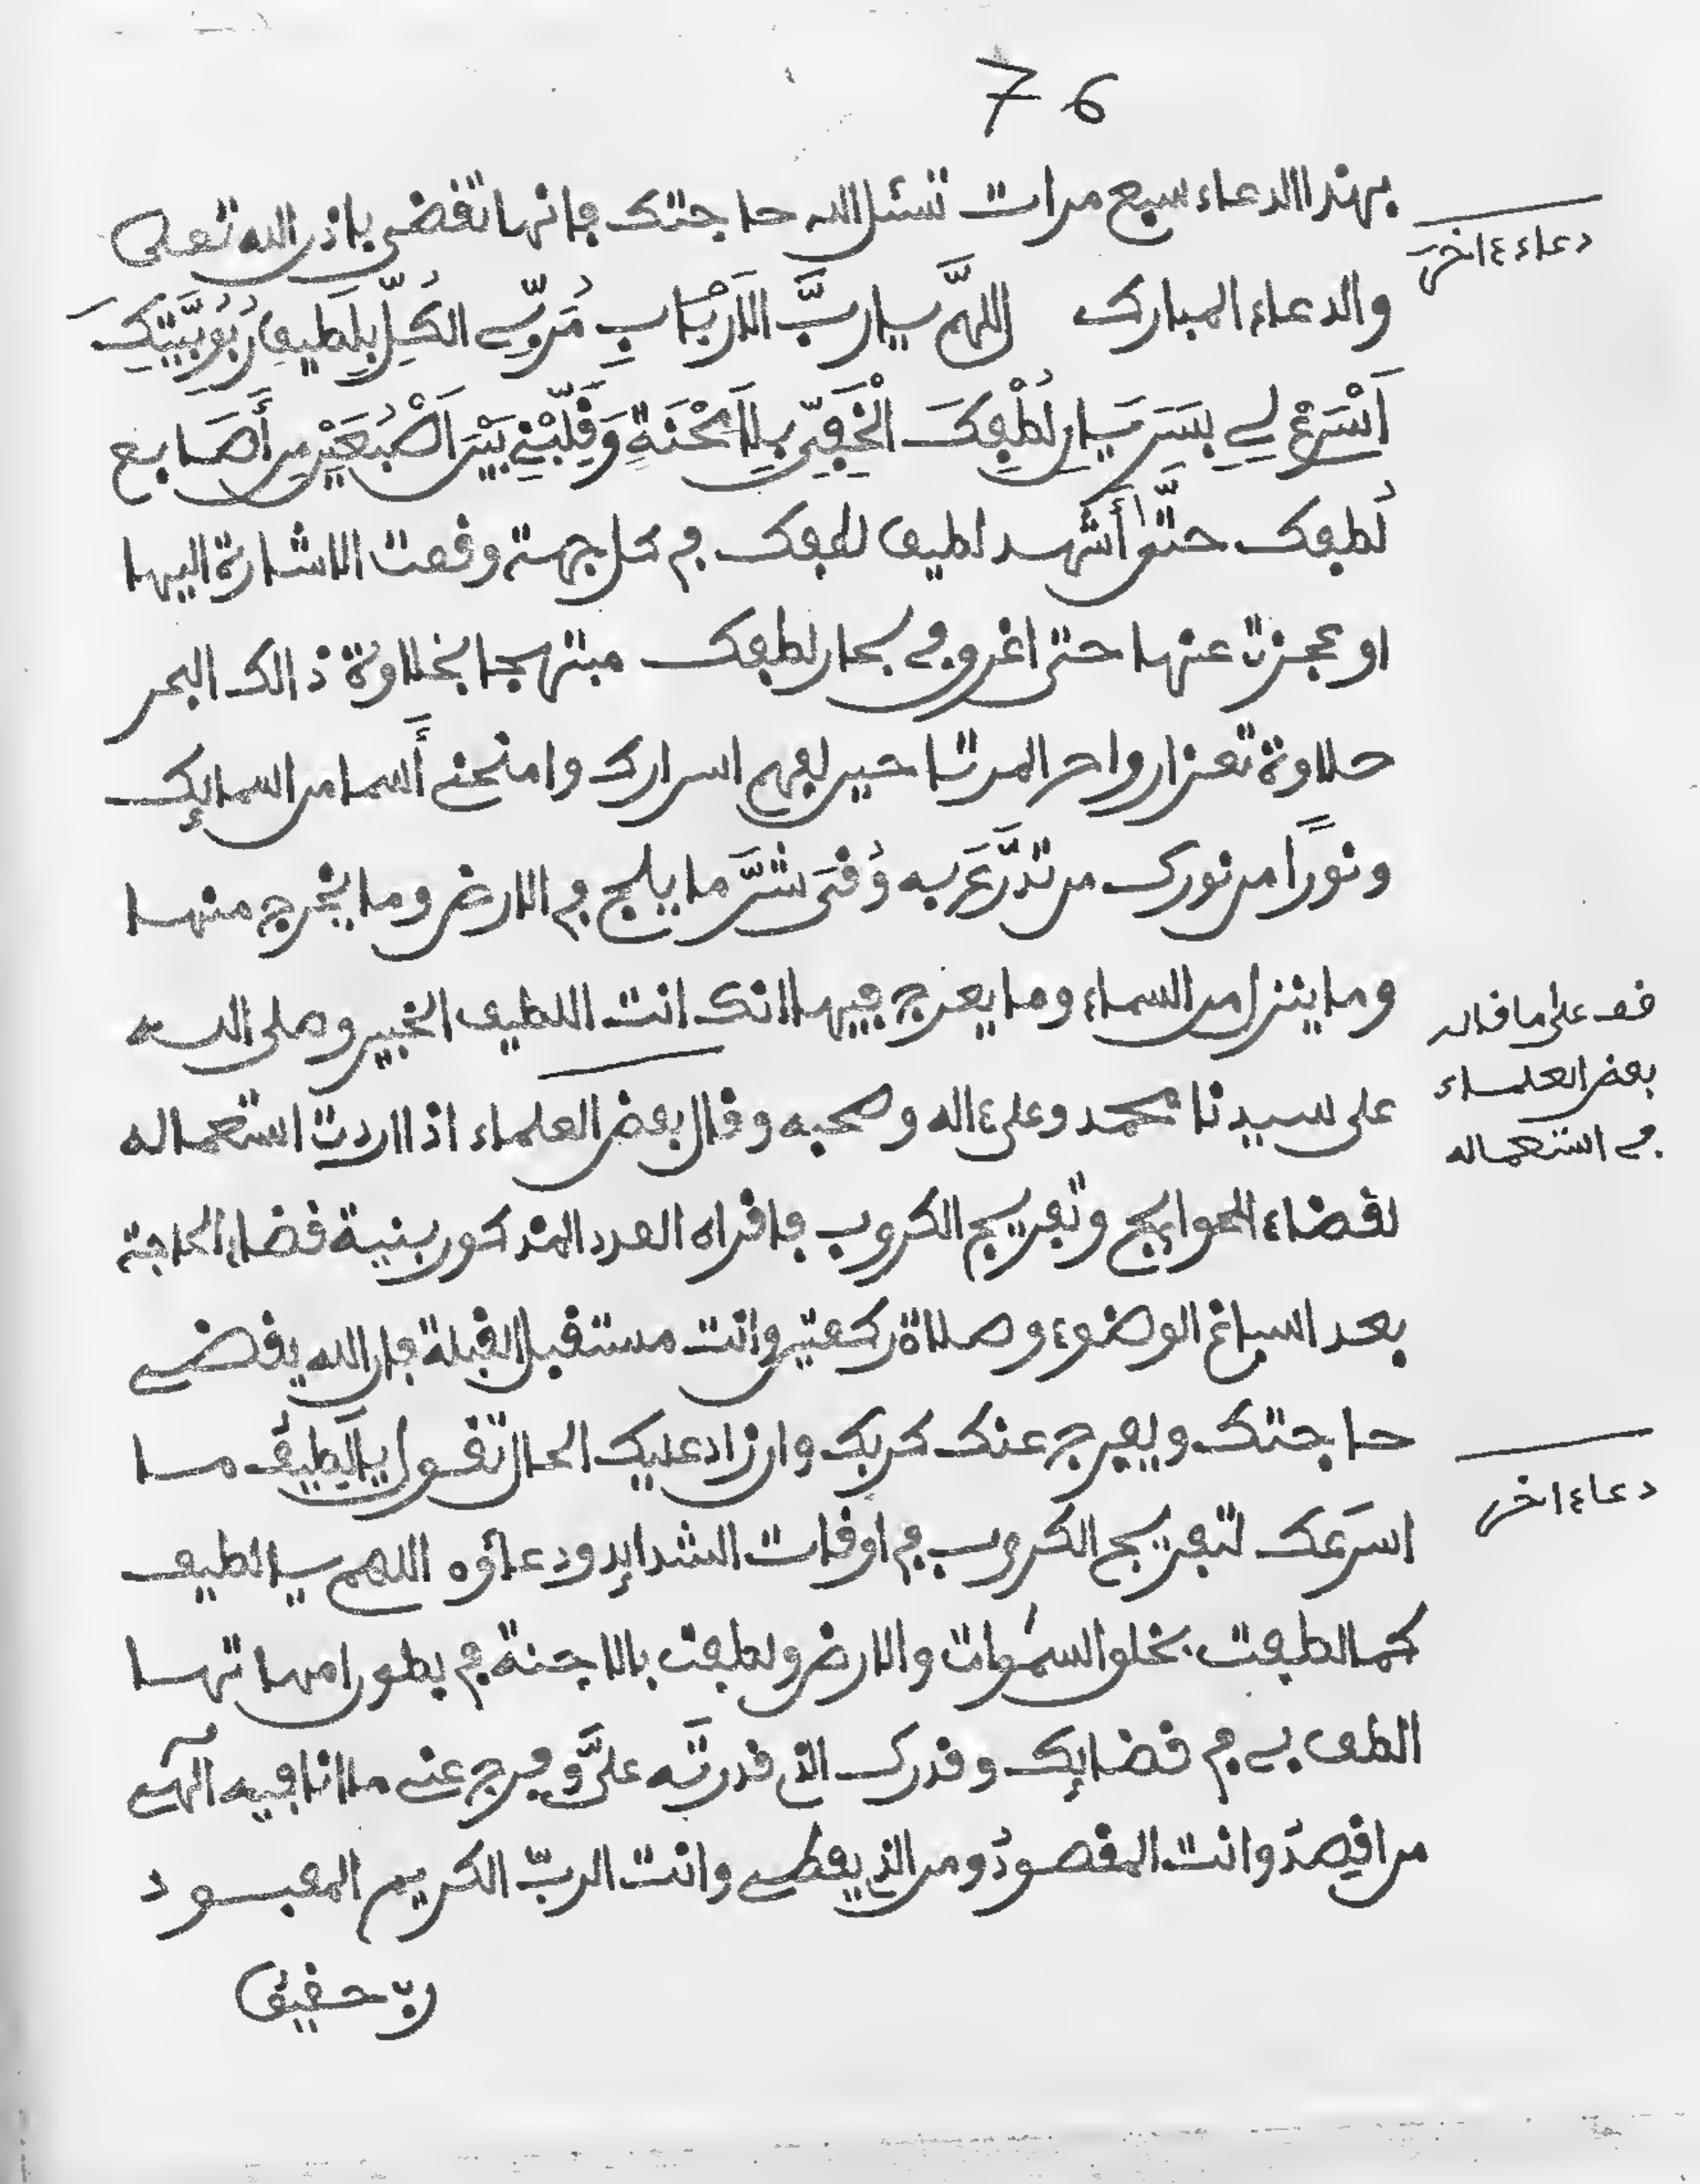 76
بهذا الدعاء سبع مرات تسئل الله حاجتك فإنها تقضى بإذن الله تعلى
دعاء ءاخر
والدعاء المبارك اللهُمَّ يا ربَّ الأَرْبَابِ مُرَبِّي الكُلِّ بِلَطِيفِ رُبُوبِيَّتِكَ
أَسْرِعْ لِي بِسَرَيَانِ لُطْفِكَ الْخَفِيِّ بِلَا مْحْنَةٍ وَقَلِّبْنِي بَيْنَ أَصْبُعَيْنِ مِن أَصَابِع
لُطفِك حتَّى أَشْهد لطيف لطفك في كل جهة وقعت الاشارة اليها
او عجزت عنها حتى اغرق في بحار لطفك مبتهجا بحلاوة ذالك البحر
حلاوة تعز ارواح المرتاحين لفهم اسرارك وامنحني أَسما من اسمائك
ونورًا من نورك من تدَرَّعَ به وُقى شرَّ ما يلج في الارض وما يخرج منها
وما ينزل من السماء وما يعرج فيها انك انت اللطيف الخبير وصلى الله
قف على ما قاله
بعض العلماء
في استعماله
على سيدنا محمد وعلى ءاله وصحبه وقال بعض العلماء اذا اردت استعماله
لقضاء الحوايج وتفريج الكروب فاقراه العدد المذكور بنية قضاء الحاجة
بعد اسباغ الوضوء وصلاة ركعتين وانت مستقبل القبلة فإن الله يقضي
حاجتك ويفرج عنك كربك وان زاد عليك الحال تقول يا لَطِيفُ مـا
دعاء ءاخر
اسرعك لتفريج الكروب في اوقات الشدايد ودعاؤه اللهم يا لطيف
كما لطفت بخلق السموات والارض ولطفت بالاجنة في بطون امهاتها
الطف بي في قضايك وقدرك الذي قدرته عليَّ وفرج عني ما انا فيه الهي
من اقصدُ وانت المقصودُ ومن الذي يعطي وانت الربّ الكريم المعبود
ربّ حقيق